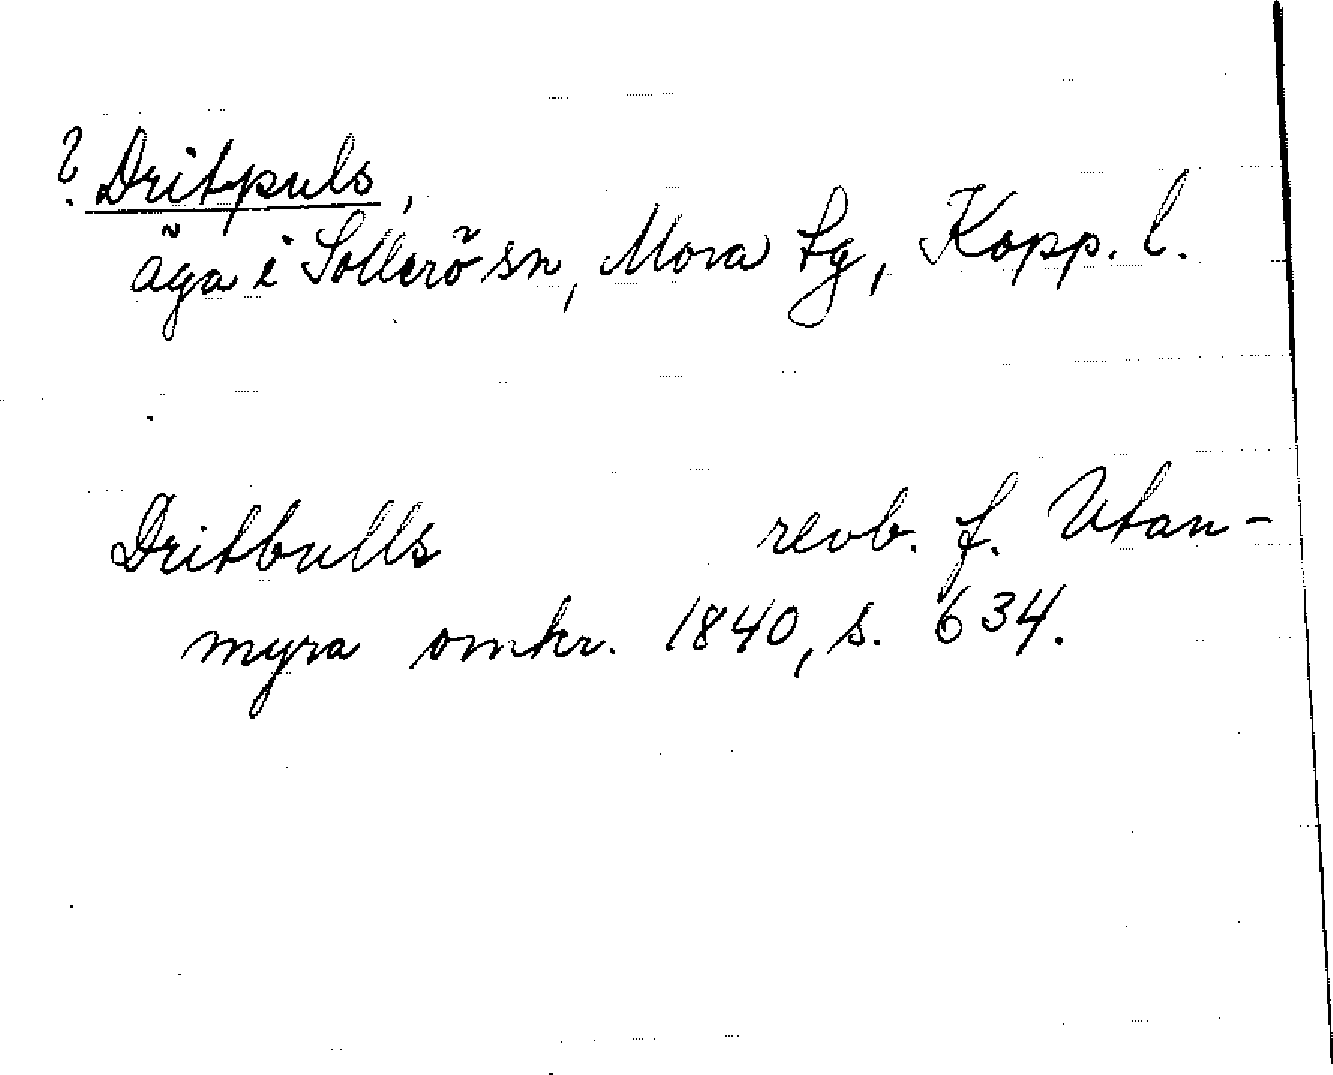 ? Dritpuls,
äga i Sollerö sn, Mora tg, Kopp. l.
Dritbulls revb. f. Utan-
myra omkr. 1840, s. 634.